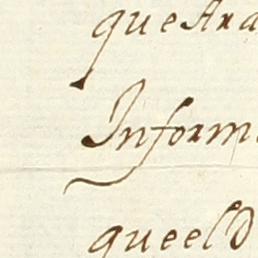 que Ara
Inform
que el D